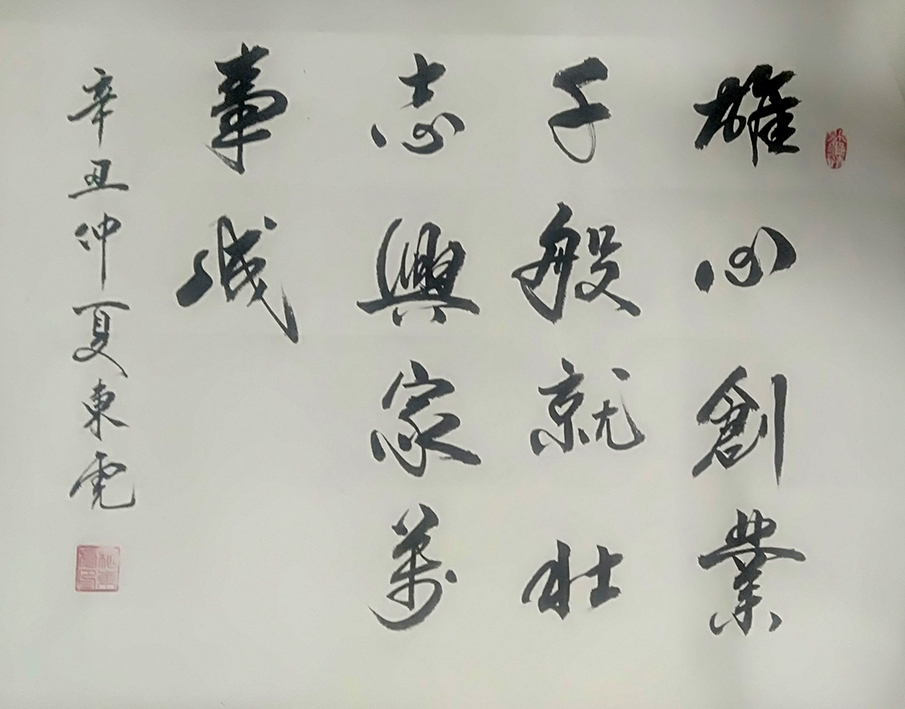 雄心創業
千般就壯
志興家萬
事成
辛丑仲夏東虎